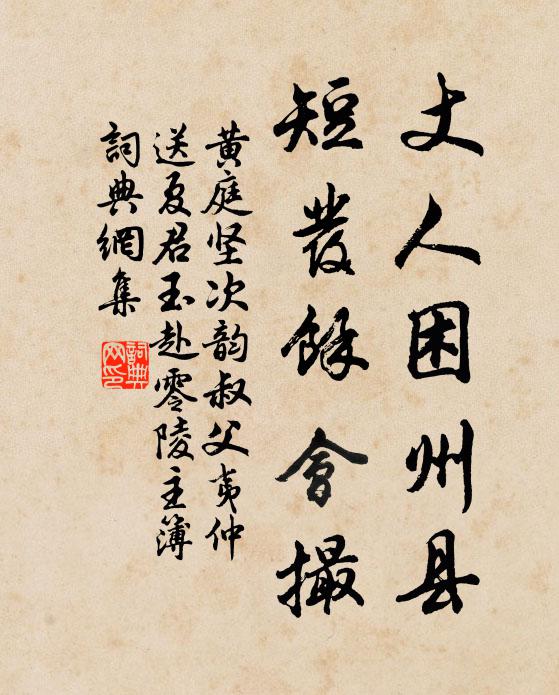 丈人困州县
短发餘會撮
黄庭坚次韵叔父夷仲
送夏君玉赴零陵主簿
詞典網集
詞典
网印